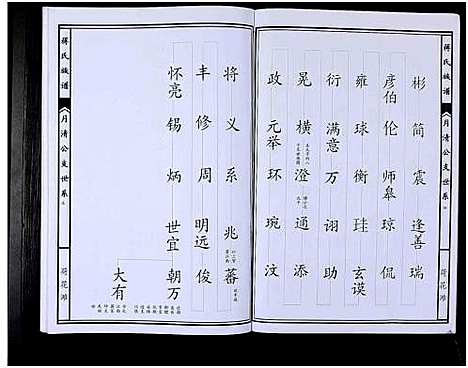 蒋氏族谱
月清公支世系
荷花滩
彬 简 震 逢善 瑞
彦伯 伦 师皋 琼 侃
雍 球 衡 珪 玄谟
衍 满意 万 诩 助
晃 横 澄 通 添
政 元举 环 琬 汶
将 义 系 兆 蕃
丰 修 周 明远 俊
怀亮 锡 炳 世宜 朝万
大有
蒋氏族谱
月清公支世系
荷花滩